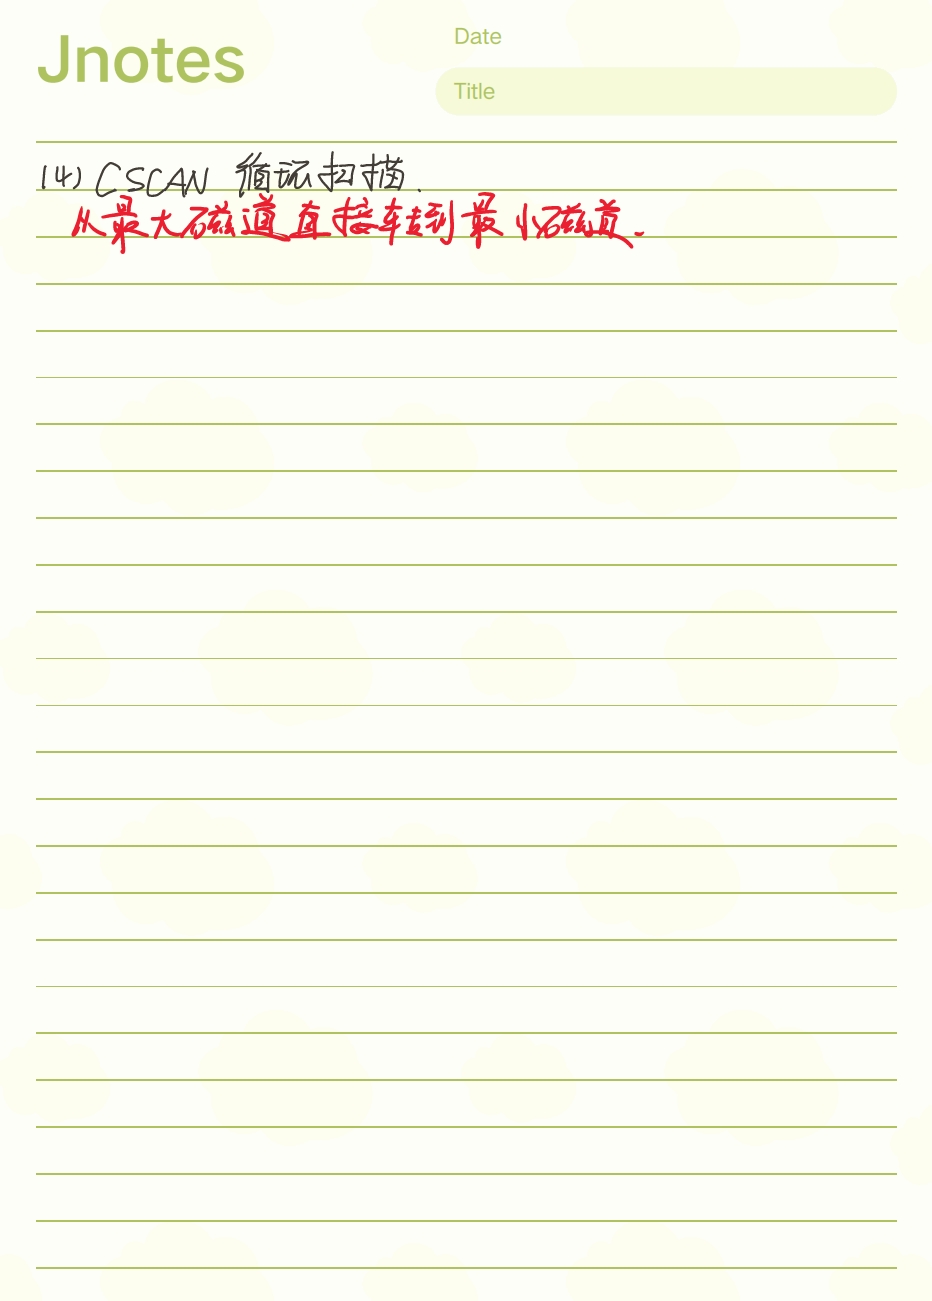 Jnotes
Date
Title
(4) CSCAN 循环扫描.
从最大磁道直接转到最小磁道.